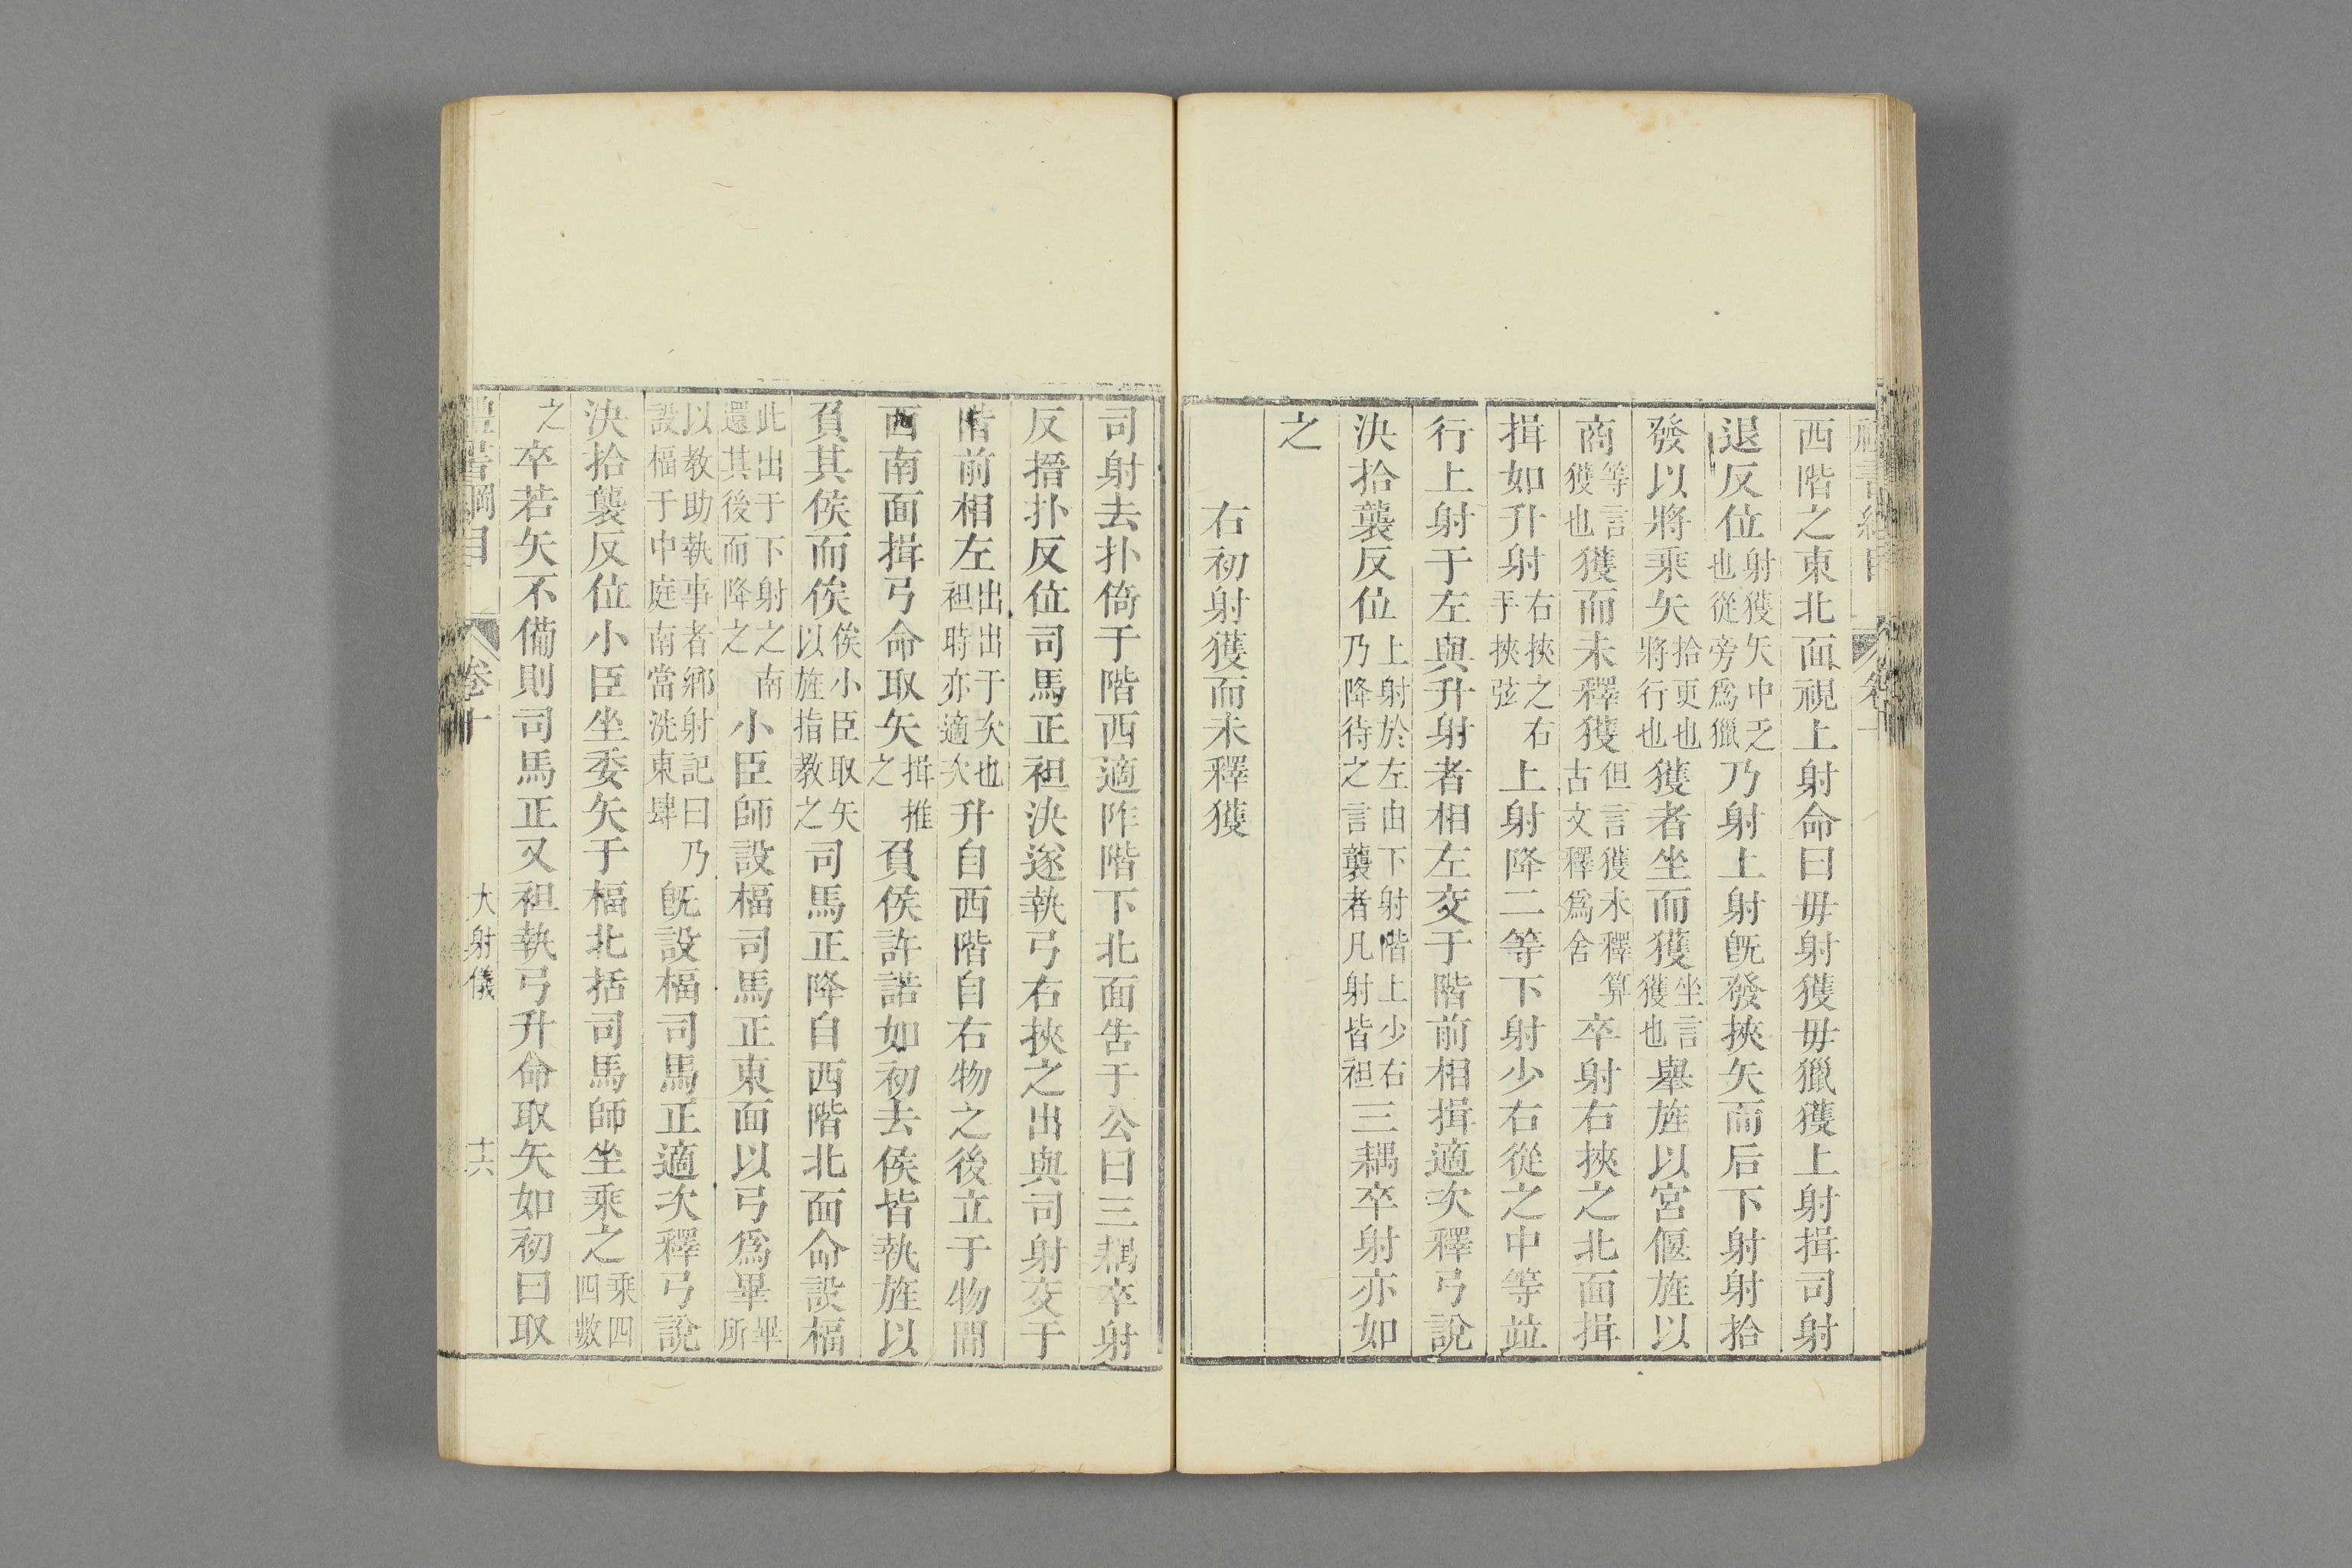 西階之東北面視上射命曰毋射獲毋獵獲上射揖司射
退反位射獲矢中乏也從旁爲獵乃射上射旣發挾矢而后下射射拾
發以將乘矢拾更也將行也獲者坐而獲坐言獲也舉旌以宮偃旌以
商等言獲也獲而未釋獲但言獲未釋算古文釋爲舍卒射右挾之北面揖
揖如升射右挾之右手挾弦上射降二等下射少右從之中等並
行上射于左與升射者相左交于階前相揖適次釋弓說
決拾襲反位上射於左由下射階上少右乃降待之言襲者凡射皆袒三耦卒射亦如
之
右初射獲而未釋獲
司射去扑倚于階西適阼階下北面告于公曰三耦卒射
反搢扑反位司馬正袒決遂執弓右挾之出與司射交于
階前相左出出于次也袒時亦適次升自西階自右物之後立于物間
西南面揖弓命取矢揖推之負侯許諾如初去侯皆執旌以
負其侯而俟俟小臣取矢以旌指教之司馬正降自西階北面命設楅
此出于下射之南還其後而降之小臣師設楅司馬正東面以弓爲畢畢所
以教助執事者鄉射記曰乃設楅于中庭南當洗東肆旣設楅司馬正適次釋弓說
決拾襲反位小臣坐委矢于楅北括司馬師坐乘之乘四四數
之卒若矢不備則司馬正又袒執弓升命取矢如初曰取
禮書綱目 卷十 大射儀 十六